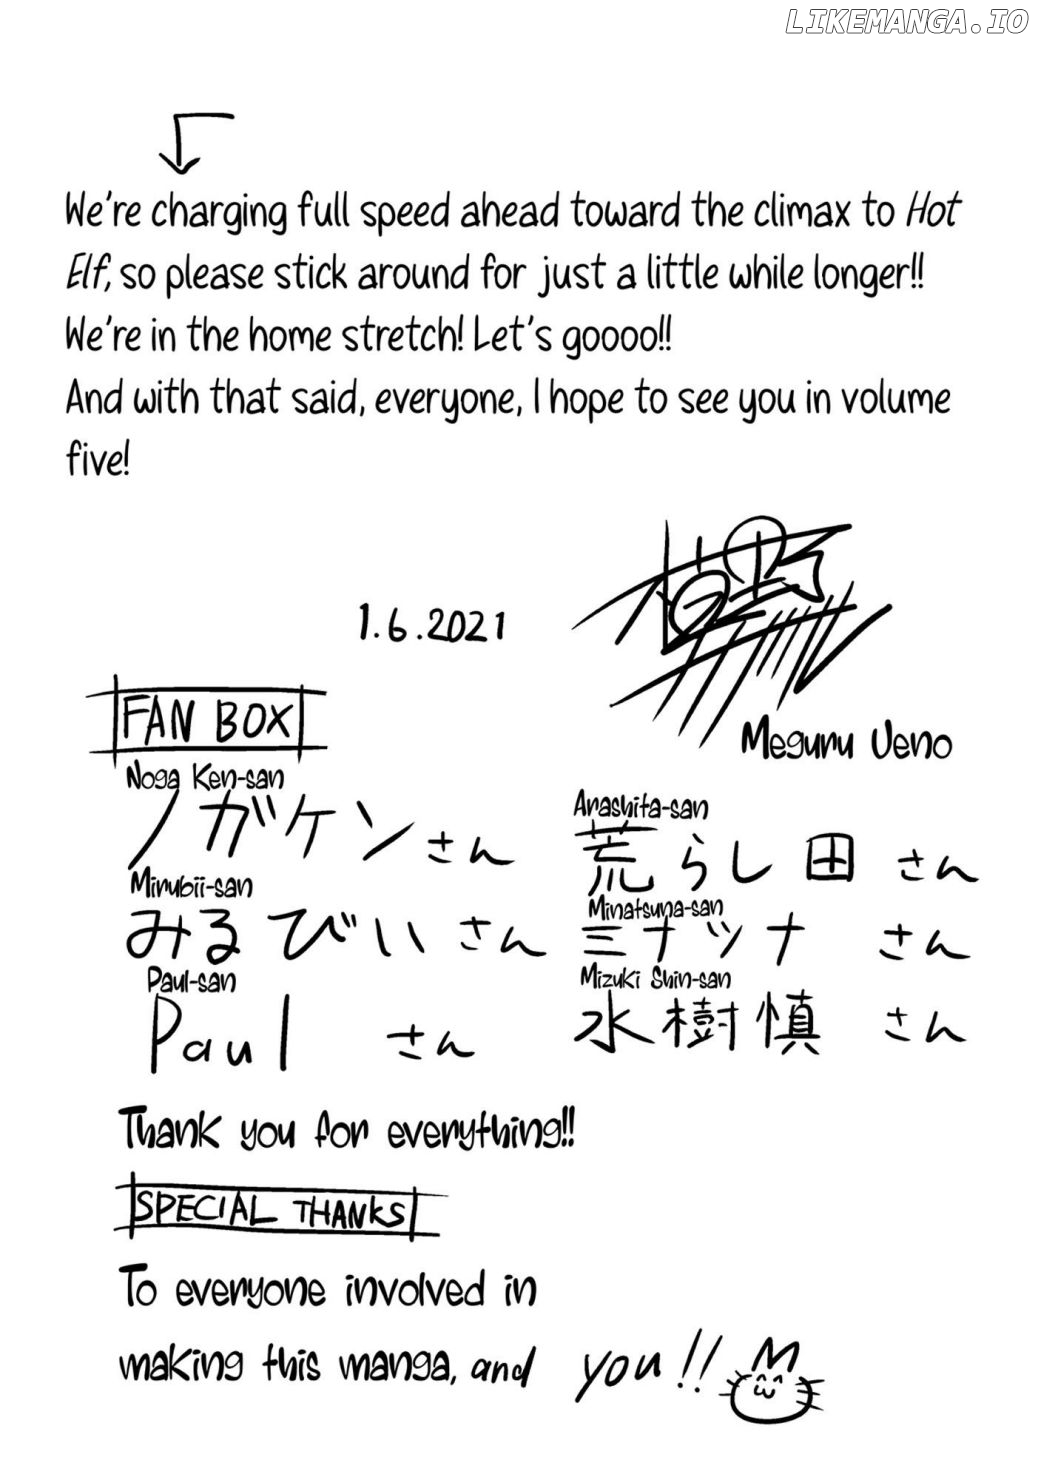 LIKEMANGA.IO
We're charging full speed ahead toward the climax to Hot
Elf, so please stick around for just a little while longer!!
We're in the home stretch! Let's goooo!!
And with that said, everyone, I hope to see you in volume
five!
1.6.2021
Meguru Ueno
FAN BOX
Noga Ken-san
ノガケンさん
Mirubii-san
みるびいさん
Paul-san
Paul さん
Arashita-san
荒らし田 さん
Minatsuna-san
ミナツナ さん
Mizuki Shin-san
水樹慎 さん
Thank you for everything!!
SPECIAL THANKS
To everyone involved in
making this manga, and you!!